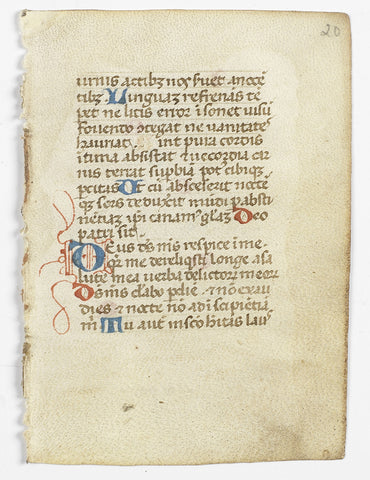 20
urnis actibz nos s̃uet a nocē
tibz Linguaz refrenās tē
pet ne litis error īsonet uisū
fouendo ɔtegat ne uanitates
hauriat. int pura cordis
ītima absistat & uecordia car
nis terat supbia pot' cibiqz
pcitas Ut cū abscesserit nocte
qz sors reduxit mūdi p absti
nētiaz ip̄i canam' gl̄az Deo
patri sit
Deus d̄s m̄s respice ī me
q̄r me dereliqsti longe a sa
lute mea uerba delictorz meorz
Ds m̄s clābo p diē & nō exau
dies & nocte nō ad īsipiētiā
m̄ Tu aut̄ in sc̄o h̄itas lau'